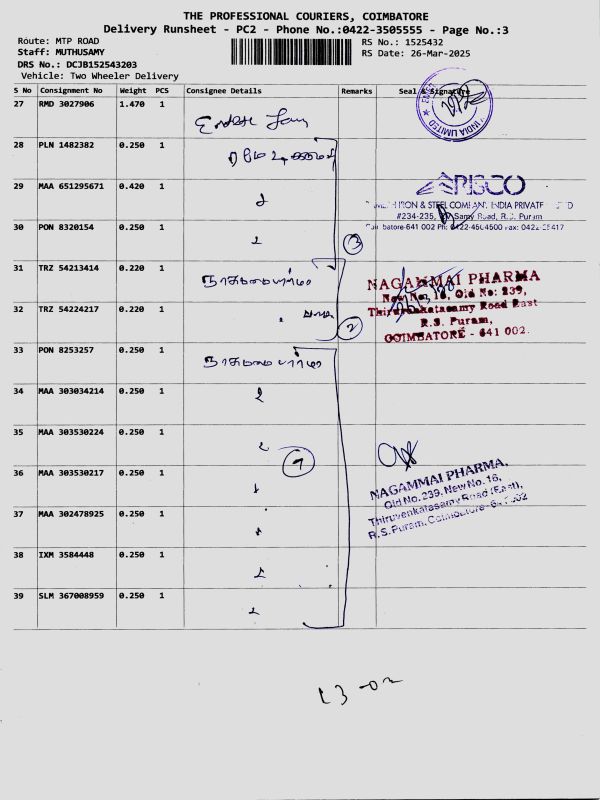 THE PROFESSIONAL COURIERS, COIMBATORE
Delivery Runsheet - PC2 - Phone No.:0422-3505555 - Page No.:3
Route: MTP ROAD
Staff: MUTHUSAMY
DRS No.: DCJB152543203
Vehicle: Two Wheeler Delivery
RS No.: 1525432
RS Date: 26-Mar-2025
S No Consignment No Weight PCS Consignee Details Remarks Seal & Signature
27 RMD 3027906 1.470 1
INDIA LIMITED
28 PLN 1482382 0.250 1
29 MAA 651295671 0.420 1
PISCO
IRON & STEEL COMPANY INDIA PRIVATE
#234-235, Samy Road, R.S. Puram
30 PON 8320154 0.250 1
3
31 TRZ 54213414 0.220 1 நாகம்மை பார்மா
NAGAMMAI PHARMA
New No: 16, Old No: 239,
Thiruvenkatasamy Road East
R.S. Puram,
COIMBATORE - 641 002.
32 TRZ 54224217 0.220 1
2
33 PON 8253257 0.250 1 நாகம்மை பார்மா
34 MAA 303034214 0.250 1
35 MAA 303530224 0.250 1
7
36 MAA 303530217 0.250 1
NAGAMMAI PHARMA,
Old No. 239, New No. 16,
Thiruvenkatasamy Road (East),
R.S. Puram, Coimbatore-641 002
37 MAA 302478925 0.250 1
38 IXM 3584448 0.250 1
39 SLM 367008959 0.250 1